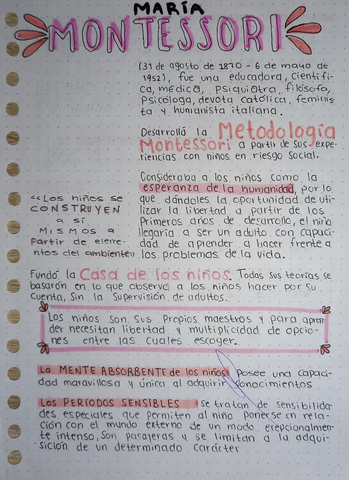 MARÍA
MONTESSORI
(31 de agosto de 1870 - 6 de mayo de
1952), fue una educadora, científi-
ca, médica, psiquiatra, filósofa,
psicóloga, devota católica, feminis
ta y humanista italiana.
Desarrolló la Metodología
Montessori a partir de sus expe-
riencias con niños en riesgo social.
Consideraba a los niños como la
esperanza de la humanidad, por lo
que dándoles la oportunidad de uti-
lizar la libertad a partir de los
primeros años de desarrollo, el niño
llegaría a ser un adulto con capaci-
dad de aprender a hacer frente a
los problemas de la vida.
<<Los niños se
CONSTRUYEN
a sí
MISMOS a
partir de eleme-
ntos del ambiente>>
Fundó la Casa de los niños. Todas sus teorías se
basarón en lo que observó a los niños hacer por su
cuenta, sin la supervisión de adultos.
Los niños son sus propios maestros y para apren
der necesitan libertad y multiplicidad de opcio-
nes entre las cuales escoger.
La MENTE ABSORBENTE de los niños posee una capaci-
dad maravillosa y única al adquirir conocimientos
Los PERIODOS SENSIBLES se tratan de sensibilida
des especiales que permiten al niño ponerse en rela-
ción con el mundo externo de un modo excepcionalme-
nte intenso, son pasajeras y se limitan a la adqui-
sición de un determinado carácter